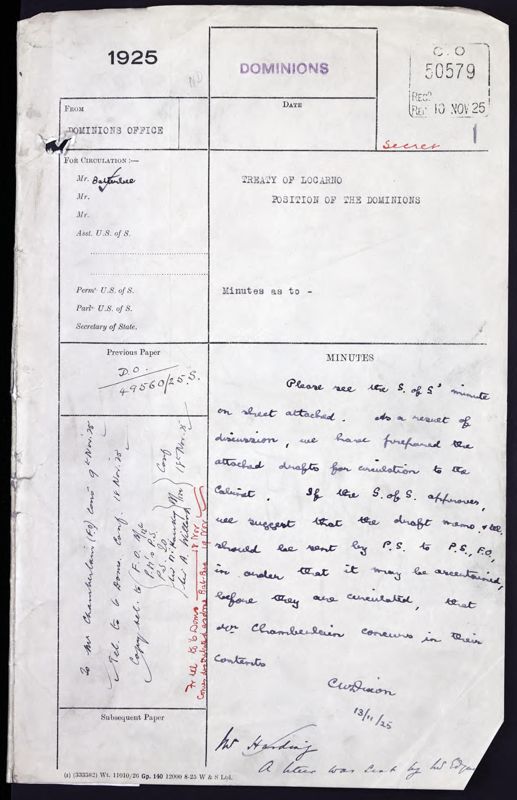 1925
DOMINIONS
C.O
50579
REGD
REC 10 NOV 25
Secret
1
FROM
DOMINIONS OFFICE
DATE
FOR CIRCULATION :—
Mr. Batterbee
Mr.
Mr.
Asst. U.S. of S.
Permt. U.S. of S.
Parly. U.S. of S.
Secretary of State.
TREATY OF LOCARNO
POSITION OF THE DOMINIONS
Minutes as to -
Previous Paper
D.O.
49560/25.S.
MINUTES
Please see the S. of S's minute
on sheet attached. As a result of
discussion, we have prepared the
attached drafts for circulation to the
Cabinet. If the S. of S. approves,
we suggest that the draft memo. & tel.
should be sent by P.S. to P.S., F.O.,
in order that it may be ascertained,
before they are circulated, that
Mr Chamberlain concurs in their
contents
CWDixon
13/11/25
Mr Harding
A letter was sent by Mr
To Mr Chamberlain (FO) 9th Nov. 25
Tel. to 6 Doms. Conf. 18 Nov. 25
Copy tel. to F.O.
P.M's P.S.
P.S.
Conf
18 Nov. 25
Fr tel to 6 Doms 19 Nov
Subsequent Paper
(2) (333582) Wt. 11010/26 Gp. 140 12000 8-25 W & S Ltd.